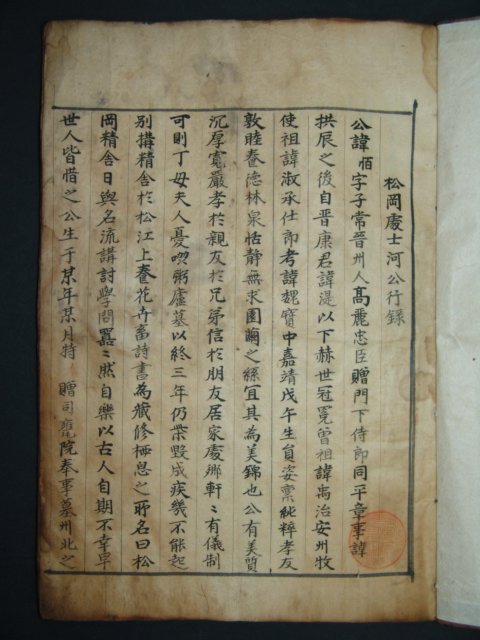 松岡處士河公行錄
公諱恒字子常晉州人高麗忠臣贈門下侍郎同平章事諱
拱辰之後自晉康君諱湜以下赫世冠冕曾祖諱禹治安州牧
使祖諱淑承仕郎考諱魏寶中嘉靖戊午生員姿稟純粹孝友
敦睦養德林泉恬靜無求園蘭之絲宜其為美錦也公有美質
沉厚寬嚴孝於親友於兄弟信於朋友居家處鄉軒〻有儀制
可則丁母夫人憂啜粥廬墓以終三年仍柴毀成疾幾不能起
別搆精舍於松江上養花卉畜詩書為藏修棲息之所名曰松
岡精舍日與名流講討學問嚣〻然自樂以古人自期不幸早
世人皆惜之公生于某年某月特 贈司饔院奉事墓州北之